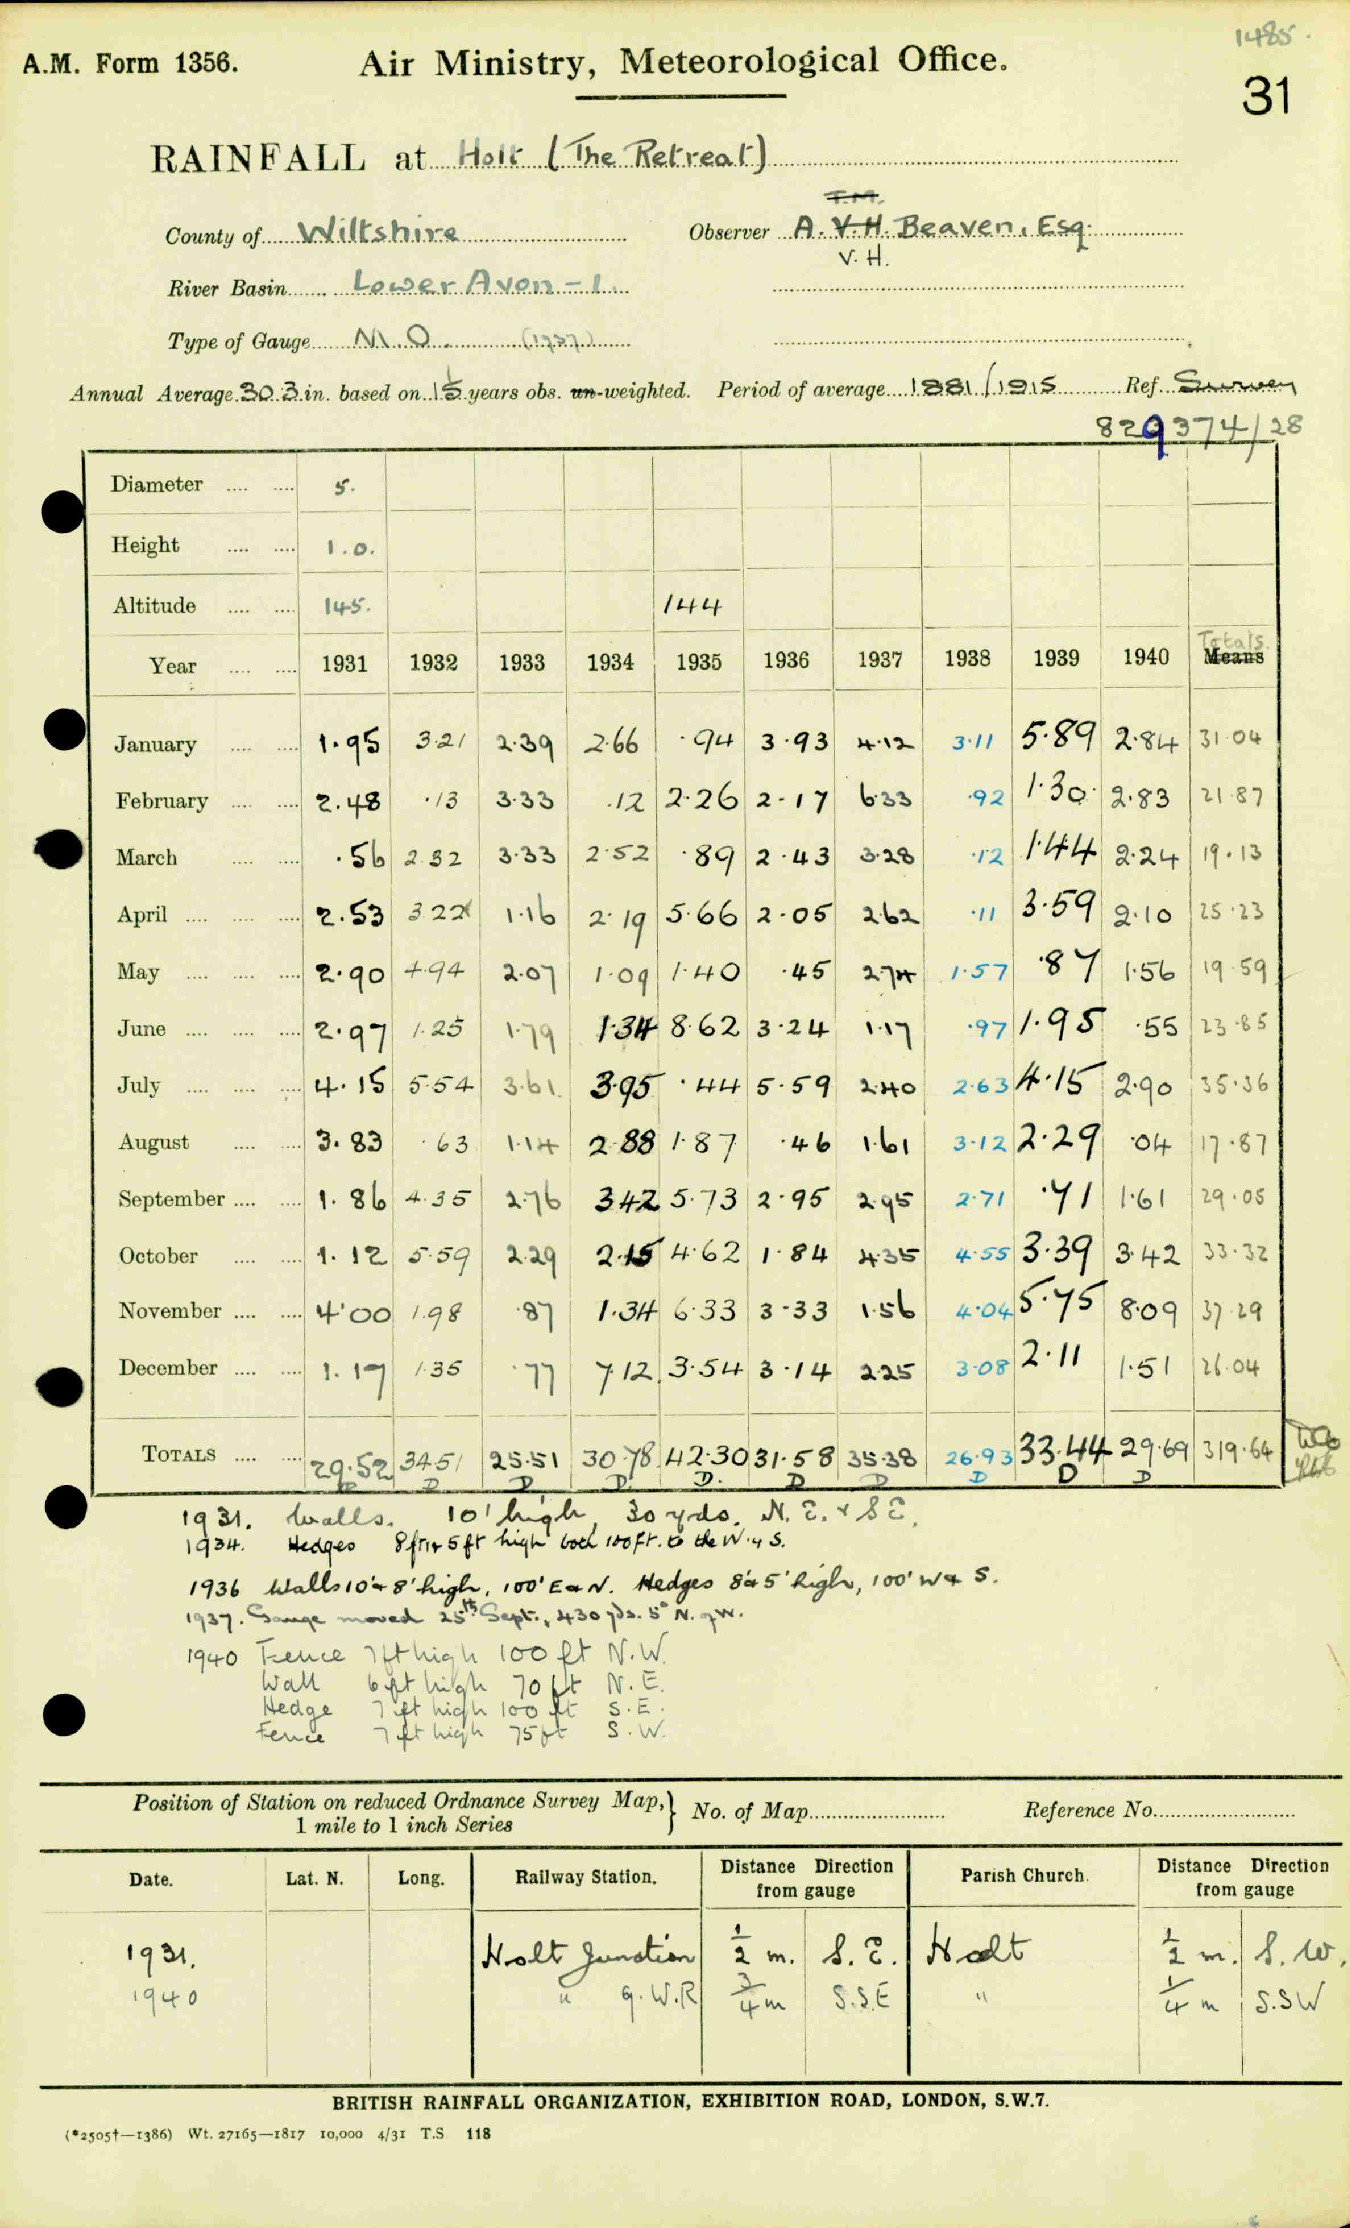 1485.
A.M. Form 1356. Air Ministry, Meteorological Office.
31
RAINFALL at Holt (The Retreat)
County of Wiltshire Observer A. V.H. Beaven, Esq.
V. H.
River Basin Lower Avon - 1.
Type of Gauge M.O. (1937)
Annual Average 30.3 in. based on 15 years obs. un-weighted. Period of average 1881/1915 Ref. Survey
829374/28
Diameter .... .... 5.
Height .... .... 1.0.
Altitude .... .... 145. 144
Totals
Year .... .... 1931 1932 1933 1934 1935 1936 1937 1938 1939 1940 Means
January .... .... 1.95 3.21 2.39 2.66 .94 3.93 4.12 3.11 5.89 2.84 31.04
February .... .... 2.48 .13 3.33 .12 2.26 2.17 6.33 .92 1.30 2.83 21.87
March .... .... .56 2.32 3.33 2.52 .89 2.43 3.28 .12 1.44 2.24 19.13
April .... .... .... 2.53 3.22 1.16 2.19 5.66 2.05 2.62 .11 3.59 2.10 25.23
May .... .... .... 2.90 4.94 2.07 1.09 1.40 .45 2.74 1.57 .87 1.56 19.59
June .... .... .... 2.97 1.25 1.79 1.34 8.62 3.24 1.17 .97 1.95 .55 23.85
July .... .... .... 4.15 5.54 3.61 3.95 .44 5.59 2.40 2.63 4.15 2.90 35.36
August .... .... 3.83 .63 1.14 2.88 1.87 .46 1.61 3.12 2.29 .04 17.87
September .... .... 1.86 4.35 2.76 3.42 5.73 2.95 2.95 2.71 .71 1.61 29.05
October .... .... 1.12 5.59 2.29 2.15 4.62 1.84 4.35 4.55 3.39 3.42 33.32
November .... .... 4.00 1.98 .87 1.34 6.33 3.33 1.56 4.04 5.75 8.09 37.29
December .... .... 1.17 1.35 .77 7.12 3.54 3.14 2.25 3.08 2.11 1.51 26.04
TOTALS .... .... 29.52 34.51 25.51 30.78 42.30 31.58 35.38 26.93 33.44 29.69 319.64
D D D D D. D D D D D
1931. Walls. 10' high, 30 yds. N.E. & S.E.
1934. Hedges 8ft & 5ft high both 100ft. to the W. & S.
1936 Walls 10' & 8' high, 100' E & N. Hedges 8' & 5' high, 100' W & S.
1937. Gauge moved 25th Sept., 430 yds. 5° N. of W.
1940 Fence 7ft high 100 ft N.W.
Wall 6 ft high 70 ft N.E.
Hedge 7 ft high 100 ft S.E.
Fence 7 ft high 75ft S.W.
Position of Station on reduced Ordnance Survey Map, } No. of Map Reference No.
1 mile to 1 inch Series
Date. Lat. N. Long. Railway Station. Distance Direction from gauge Parish Church. Distance Direction from gauge
1931. Holt Junction 1/2 m. S.E. Holt 1/2 m. S.W.
1940 " G.W.R 3/4 m S.S.E " 1/4 m S.SW
BRITISH RAINFALL ORGANIZATION, EXHIBITION ROAD, LONDON, S.W.7.
(*2505†—1386) Wt. 27165—1817 10,000 4/31 T.S 118